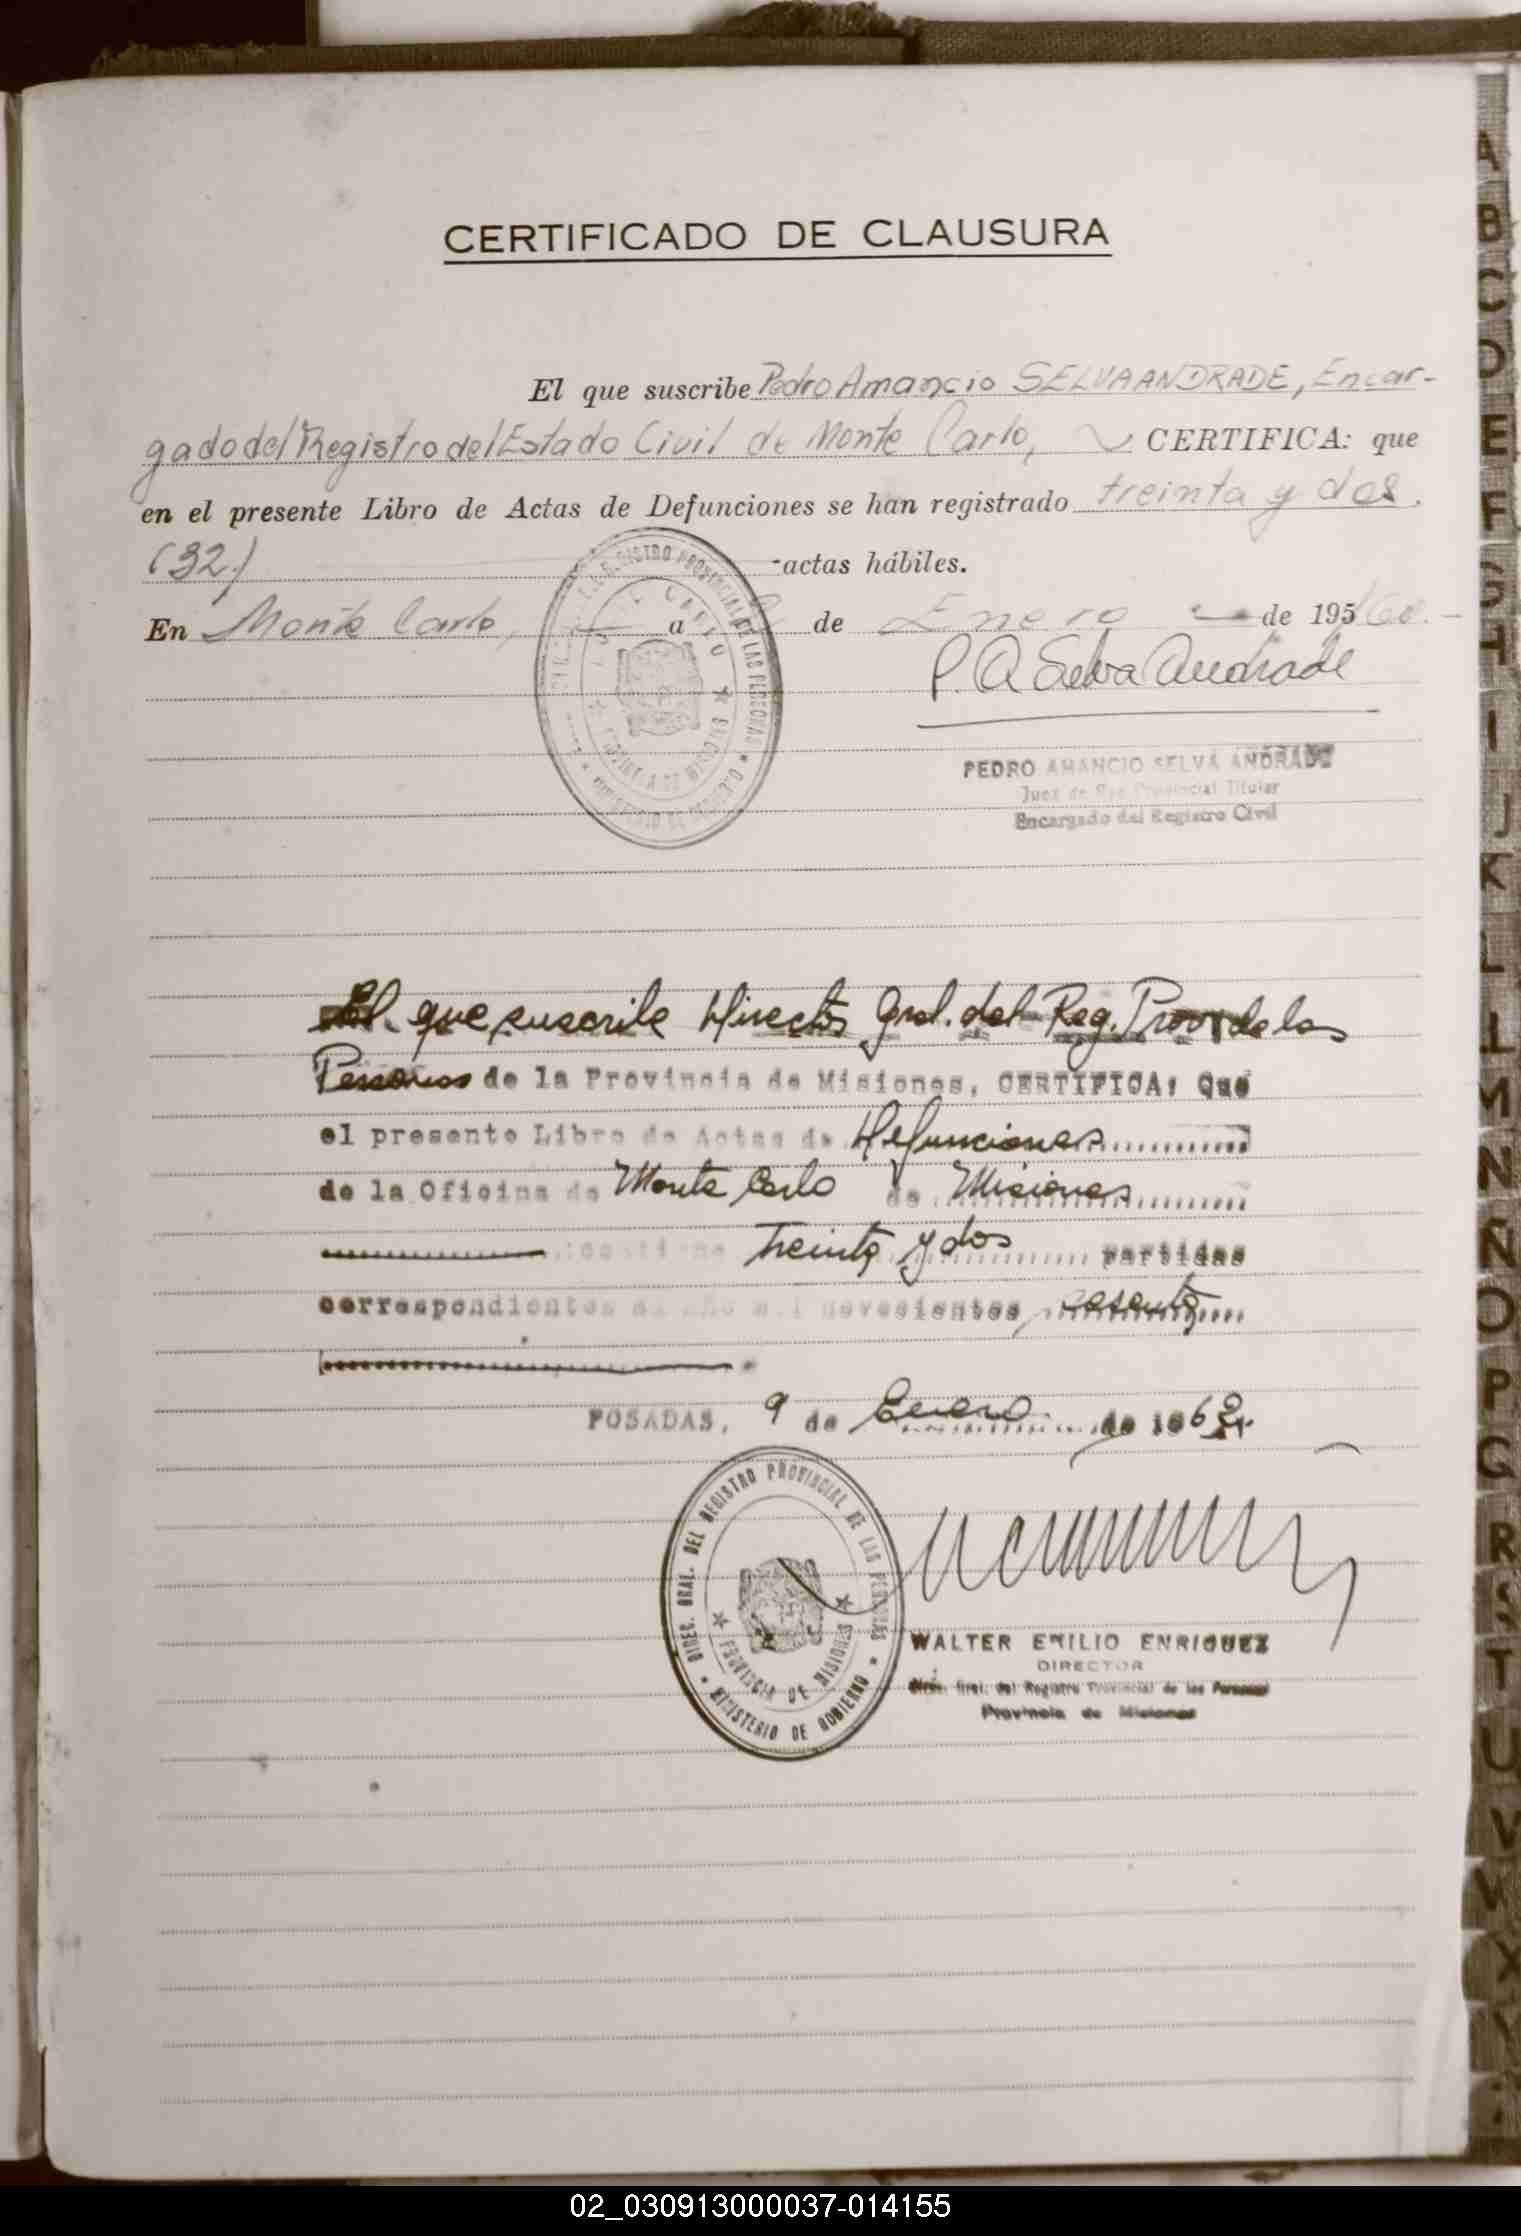 CERTIFICADO DE CLAUSURA
El que suscribe Pedro Amancio SELVA ANDRADE, Encar-
gado del Registro del Estado Civil de Monte Carlo, CERTIFICA: que
en el presente Libro de Actas de Defunciones se han registrado treinta y dos.
(32) actas hábiles.
En Monte Carlo, a de Enero de 195 60.-
P. A Selva Andrade
PEDRO AMANCIO SELVA ANDRADE
Juez de Paz Provincial Titular
Encargado del Registro Civil
REGISTRO PROVINCIAL DE LAS PERSONAS
MONTE CARLO
PROVINCIA DE MISIONES
MINISTERIO DE GOBIERNO
El que suscribe Director Gral. del Reg. Prov de las
Personas de la Provincia de Misiones, CERTIFICA: Que
el presente Libro de Actas de Defunciones
de la Oficina de Monte Carlo de Misiones
contiene treinta y dos partidas
correspondientes al año mil novecientos sesenta
POSADAS, 9 de Enero de 196
DIREC. GRAL. DEL REGISTRO PROVINCIAL DE LAS PERSONAS
PROVINCIA DE MISIONES
MINISTERIO DE GOBIERNO
WALTER EMILIO ENRIQUEZ
DIRECTOR
Direc. Gral. del Registro Provincial de las Personas
Provincia de Misiones
A
B
C
D
E
F
G
H
I
J
K
L
LL
M
N
Ñ
O
P
Q
R
S
T
U
V
W
X
Y
02_030913000037-014155